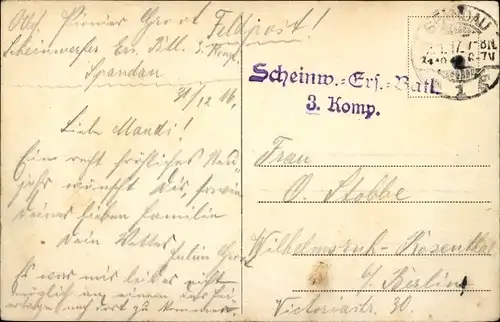 Abs. Pionier Groot Feldpost!
Scheinwerfer Ers. Batl. 3. Komp.
Spandau
31/12 16.
Scheinw.-Ers.-Batl.
3. Komp.
SPANDAU
1
Liebe Mandi!
Ein recht fröhliches Neu-
jahr wünscht Dir, sowie
Deiner lieben Familie
Dein Vetter
Julius Groot
Es war mir leider nicht
möglich an einem der
nach dort zu kommen.
Frau
O. Stobbe
Wilhelmsruh-Rosenthal
b/ Berlin
Victoriastr. 30.